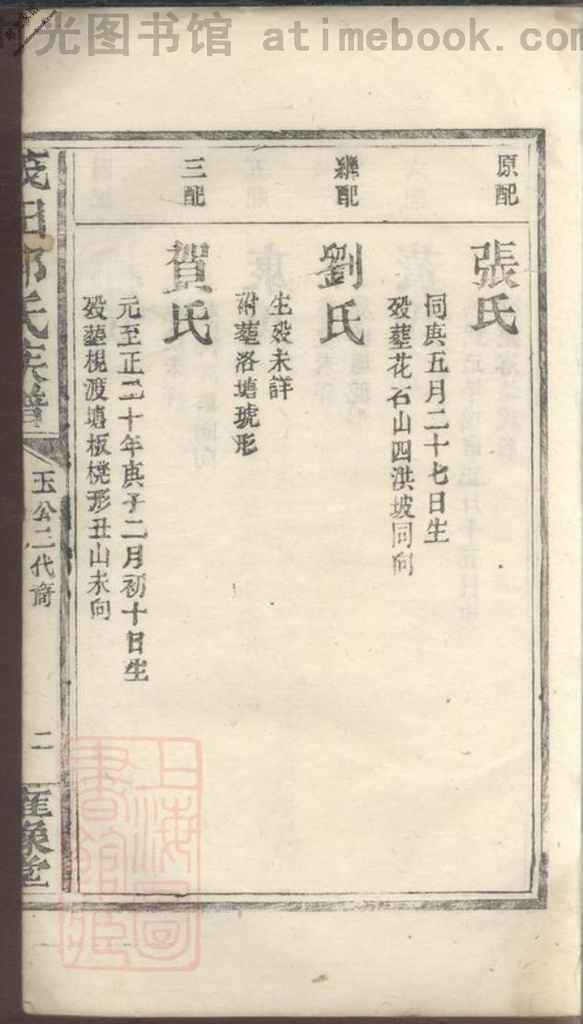 时光图书馆 atimebook.com
原配
張氏
同庚五月二十七日生
歿塟花石山四洪坡同向
繼配
劉氏
生歿未詳
附塟洛塘琥形
三配
賀氏
元至正二十年庚子二月初十日生
歿塟梘渡塘板櫈形丑山未向
茂田郭氏族譜
玉公二代裔
二
上海圖書館藏